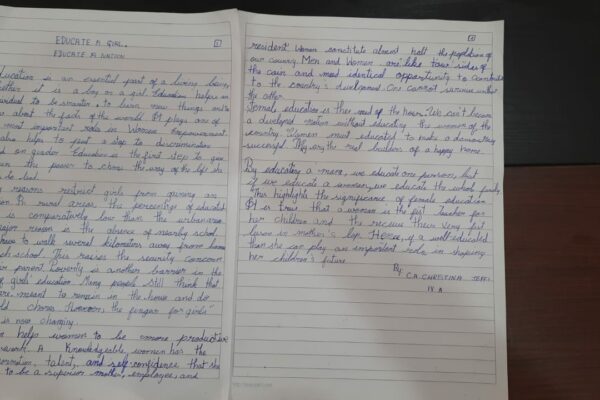 EDUCATE A GIRL,
EDUCATE A NATION
Education is an essential part of a living being
whether it is a boy or a girl. Education helps an
individual to be smarter, to learn new things and
about the facts of the world. It plays one of
most important role in Women Empowerment.
also helps to put a stop to discrimination
on gender. Education is the first step to give
the power to chose the way of the life she
to lead.
reasons restrict girls from
in rural areas, the percentage of educated
is comparatively low than the urban area.
major reason is the absence of nearby school.
have to walk several kilometers away from home
school. This raises the security concern
parent. Poverty is another barrier in the
of girls education. Many people still think that
are meant to remain in the house and do
chores. However, the for girls
is now changing.
helps women to be more productive
work. A Knowledgeable women has the
talent, and self-confidence that she
to be a superior mother, employee, and
1
2
resident. Women constitute almost half the population of
our country. Men and Women are like two sides of
the coin and need identical opportunity to contribute
to the country's development. One cannot survive without
the other.
education is the need of the hour. We can't become
a developed nation without educating the women of the
country. Women need educated to make a democracy
successful. They are the real builders of a happy home.
By educating a man, we educate one person, but
if we educate a women, we educate the whole family.
This highlights the significance of female education
It is true that a woman is the first teacher for
her children and the receive their very first
lesson in mother's lap. Hence, if a well-educated
than she can play an important role in shaping
her children's future
By:
C.A. CHRISTINA
IX A